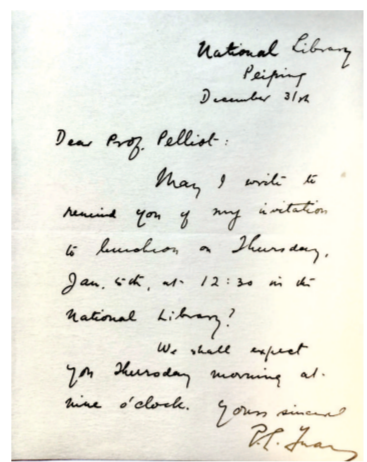 National Library
Peiping
December 31st
Dear Prof. Pelliot:
May I write to
remind you of my invitation
to luncheon on Thursday,
Jan. 5th, at 12:30 in the
National Library?
We shall expect
you Thursday morning at
nine o'clock. Yours sincerely